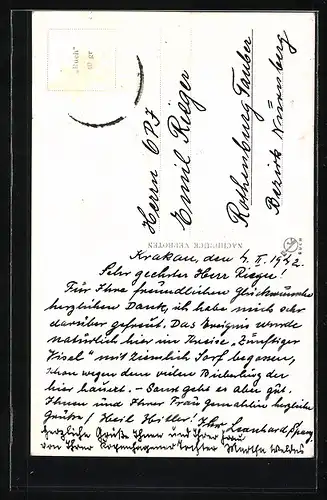 "Ruch"
Herrn OPJ
Emil Rieger
Rothenburg Tauber
Bezirk Nürnberg
NACHDRUCK VERBOTEN
Krakau, den 4. II. 1942.
Sehr geehrter Herr Rieger!
Für Ihre freundlichen Glückwünsche
herzlichen Dank, ich habe mich sehr
darüber gefreut. Das Ereignis wurde
natürlich hier im Kreise „Zünftiger
" mit ziemlich begossen,
schon wegen dem vielen der
hier haust. – Sonst geht es aber gut.
Ihnen und Ihrer Frau Gemahlin herzliche
Grüße / Heil Hitler! Ihr Leonhard
herzliche Grüße Ihnen und Ihrer Frau
von Ihrer Tochter Martha